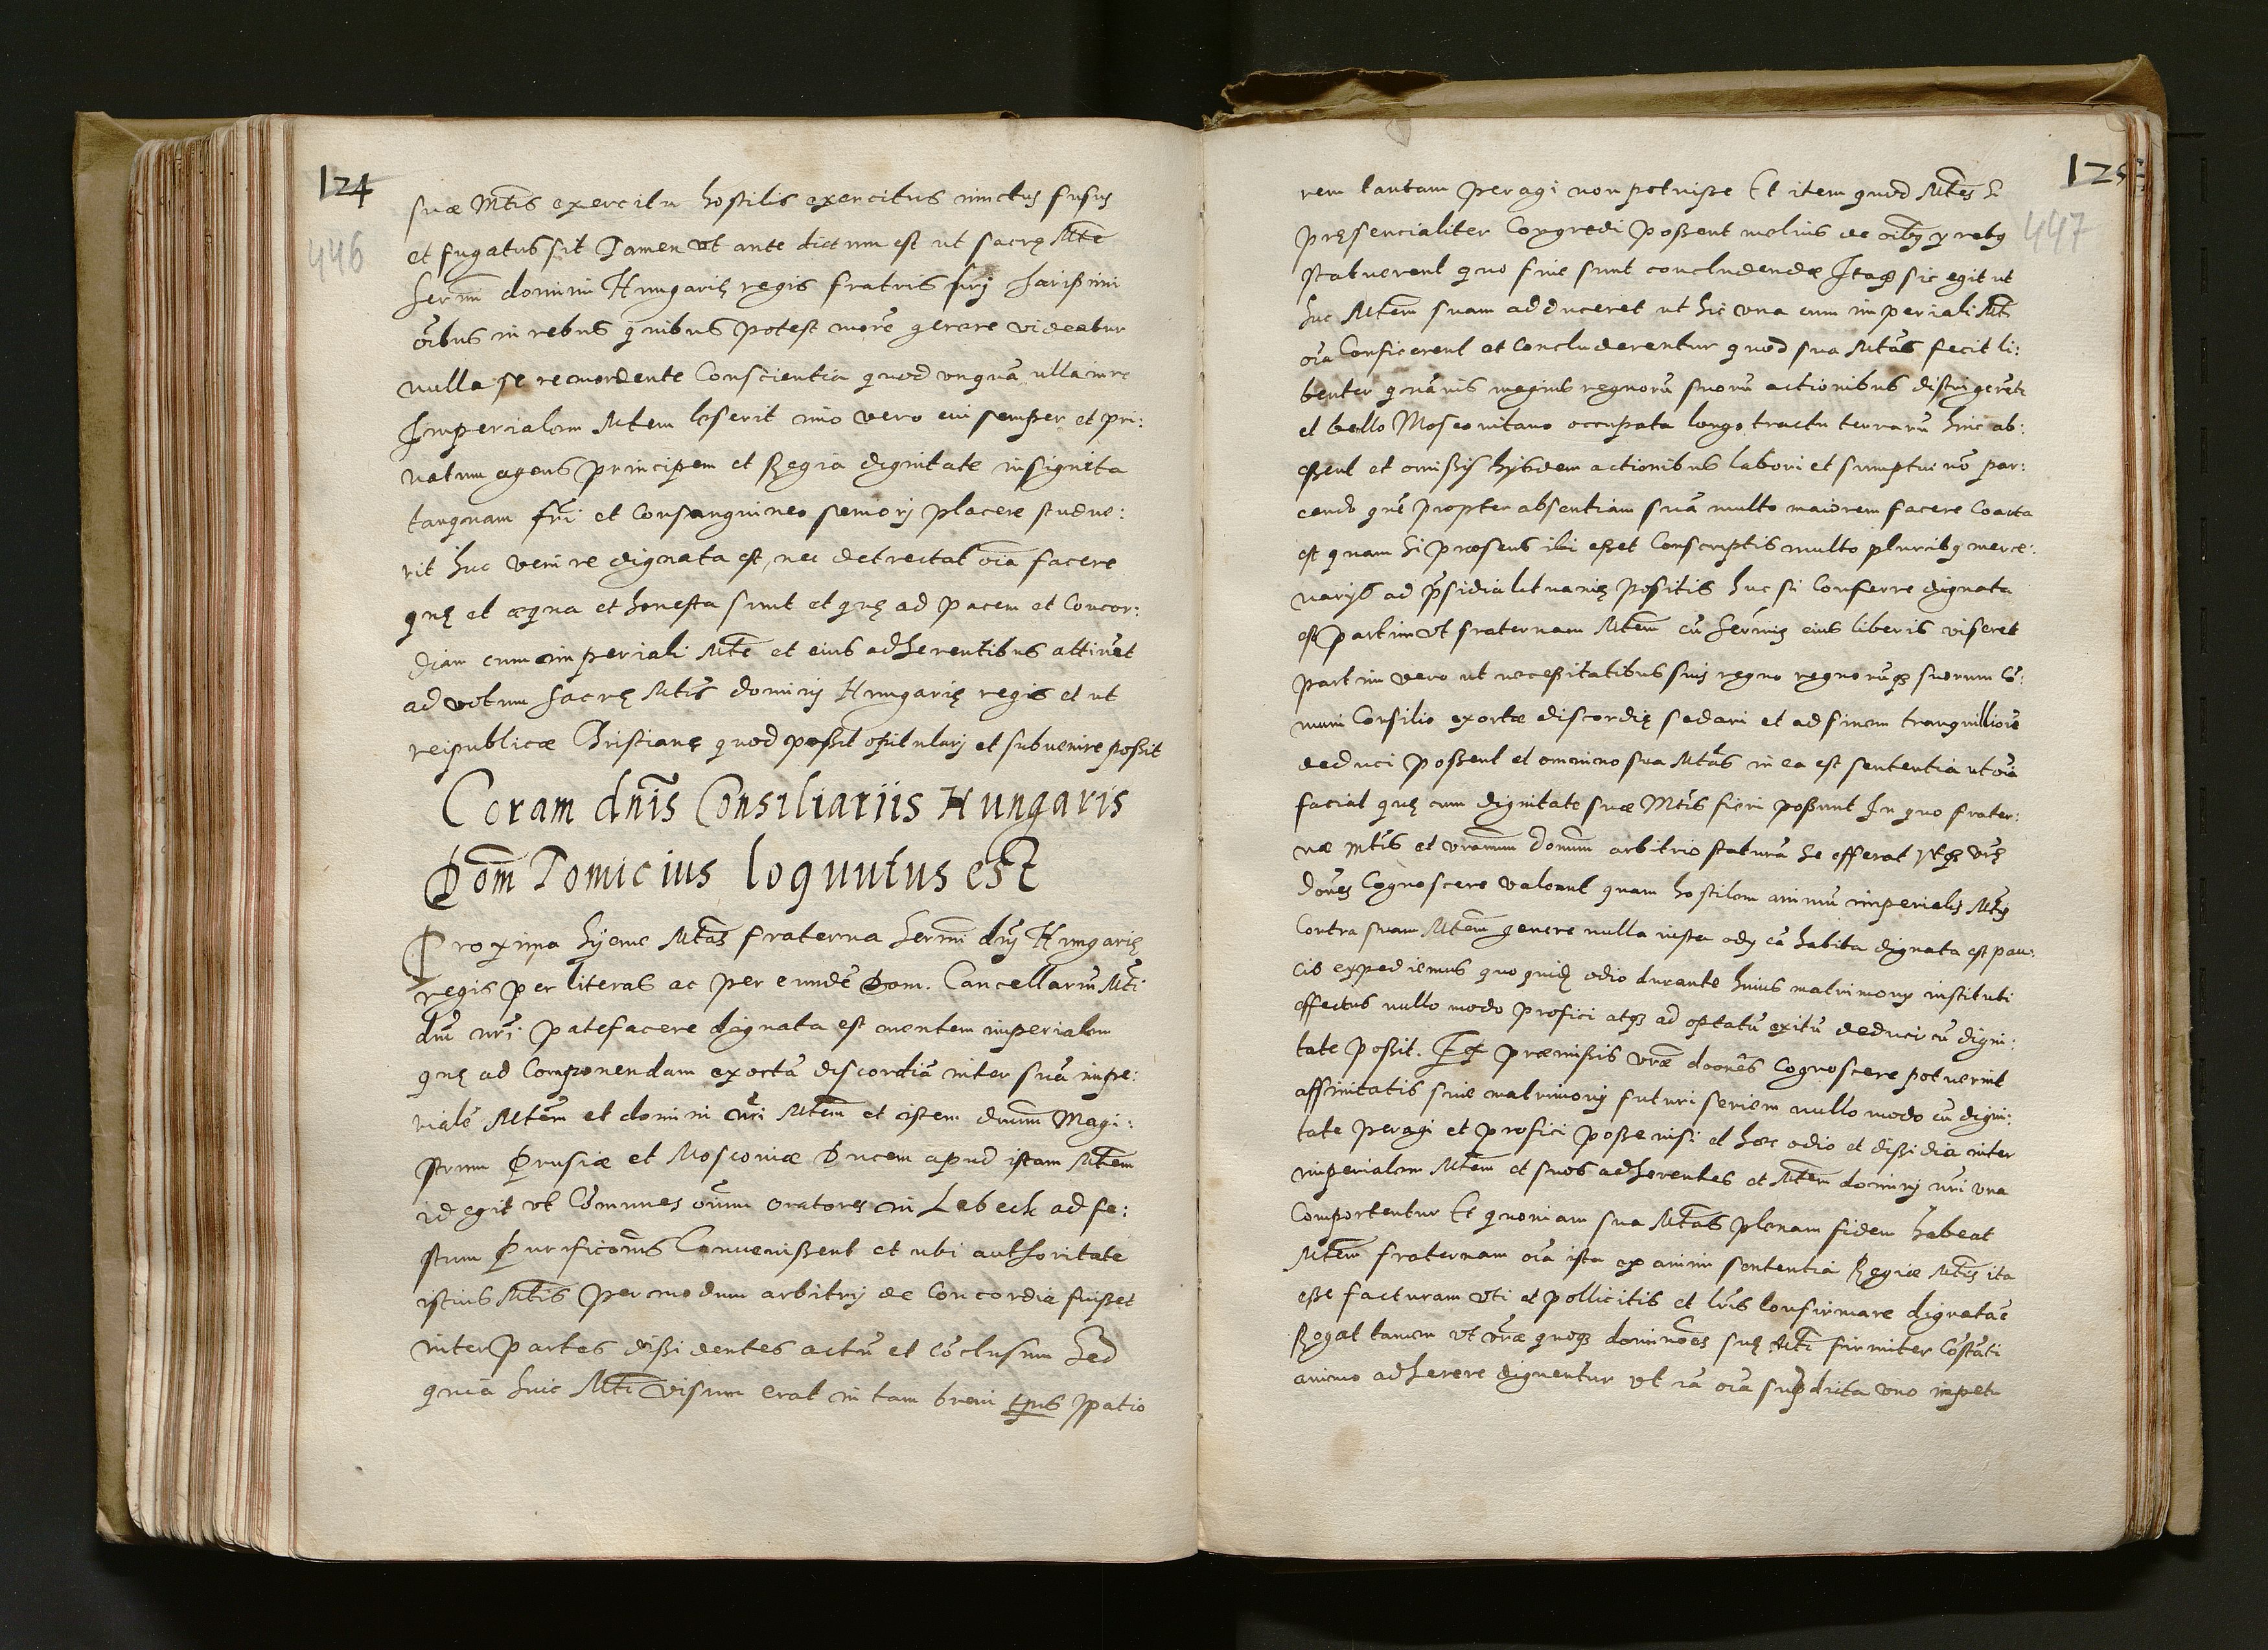 124
446
suæ Mtis exercitu hostilis exercitus victus fusus
et fugatus sit Tamen ut ante dictum est ut sacrę Mte
Sermi domini Hungarię regis fratris sui charissimi
oibus in rebus quibus potest morē gerere videatur
nulla se remordente Conscientia quod unquā ulla in re
Imperialem Mtem leserit imo vero cui semper et pri:
vatum agens principem et Regia dignitate insignita
tanquam fri et Consanguineo seniorj placere stude:
rit huc venire dignata est, nec detrectat oia facere
quę et æqua et honesta sunt et quę ad pacem et Concor:
diam cum imperiali Mte et eius adherentibus attinēt
ad votum sacrę Mtis dominj Hungarię regis et ut
reipublicæ Christianę quod possit opitularj et subvenire possit
Coram dnis Consiliariis Hungaris
Dom Tomicius loquutus est
Proxima hyeme Mtas fraterna Sermi dnj Hungarię
regis per literas ac per eundē Dom. Cancellariū Mti
dni nri patefacere dignata est mentem imperialem
quę ad Componendam exortā discordiā inter suā impe:
rialē Mtem et domini nri Mtem et item dnum Magi:
strum Prusiæ et Moscoviæ Ducem apud istam Mtem
id egit ut Comunes oium oratores in Lebeck ad fe:
stum Purificonis Convenissent et ubi authoritate
istius Mtis per modum arbitrij de Concordia fuisset
inter partes dissidentes actū et cōclusum Sed
quia huic Mti visum erat in tam brevi tpis spatio
125
447
rem tantam peragi non potuisse Et item quod Mtes
pręsencialiter Congredi possent melius de oibus rebus
statuerent quo fine sunt concludendæ Itaque sic egit ut
huc Mtem suam adduceret ut hic una cum imperiali Mte
oia Conficerent et Concluderentur quod sua Mtas fecit li:
benter quāvis magnis regnorū suorū actionibus
et bello Moscovitano occupata longo tractu terrarū hinc ab:
essent et omissis hijsdem actionibus labori et sumptui nō par:
cendo quē propter absentiam suā multo maiorem facere Coacta
est quam si præsens ibi esset Conscriptis multo pluribus merce:
narijs ad psidia lituanię positis huc se Conferre dignata
est partim ut fraternam Mtem cū Sermis eius liberis viseret
partim vero ut necessitatibus suis regno regnorūque suorum cō:
muni Consilio exortæ discordię sedari et ad finem tranquilliorē
deduci possent et omnino sua Mtas in ea est sententia ut oia
faciat quę cum dignitate suæ Mtis fieri possunt In quo frater:
næ Mtis et vrarum donum arbitrio staturā se offerat
dones Cognoscere valeant quam hostilem animū imperialis Mtis
Contra suam Mtem genere nulla iusta odij cā habita dignata est pau:
cis expediemus quo quidem odio durante huius matrimonij instituti
effectus nullo modo profici atque ad optatū exitū deduci cū digni:
tate possit. Ex præmissis vræ doones Cognoscere potuerint
affinitatis sive matrimonij futuri seriem nullo modo cū digni:
tate peragi et profici posse nisi et hæc odio et dissidia inter
imperialem Mtem et suos adherentes et Mtem dominj nri una
Comportentur Et quoniam sua Mtas plenam fidem habeat
Mtem fraternam oia ista ex animi sententia Regiæ Mtis ita
esse facturam uti et pollicitis et lris confirmare dignatā
Rogat tamen ut vræ quoque dominoes suę Mti firmiter cōstāti
animo adherere dignentur ut iā oia supdicta uno impetu